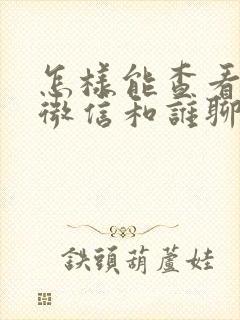 怎樣能查看
微信和誰聊
鉄頭葫蘆娃